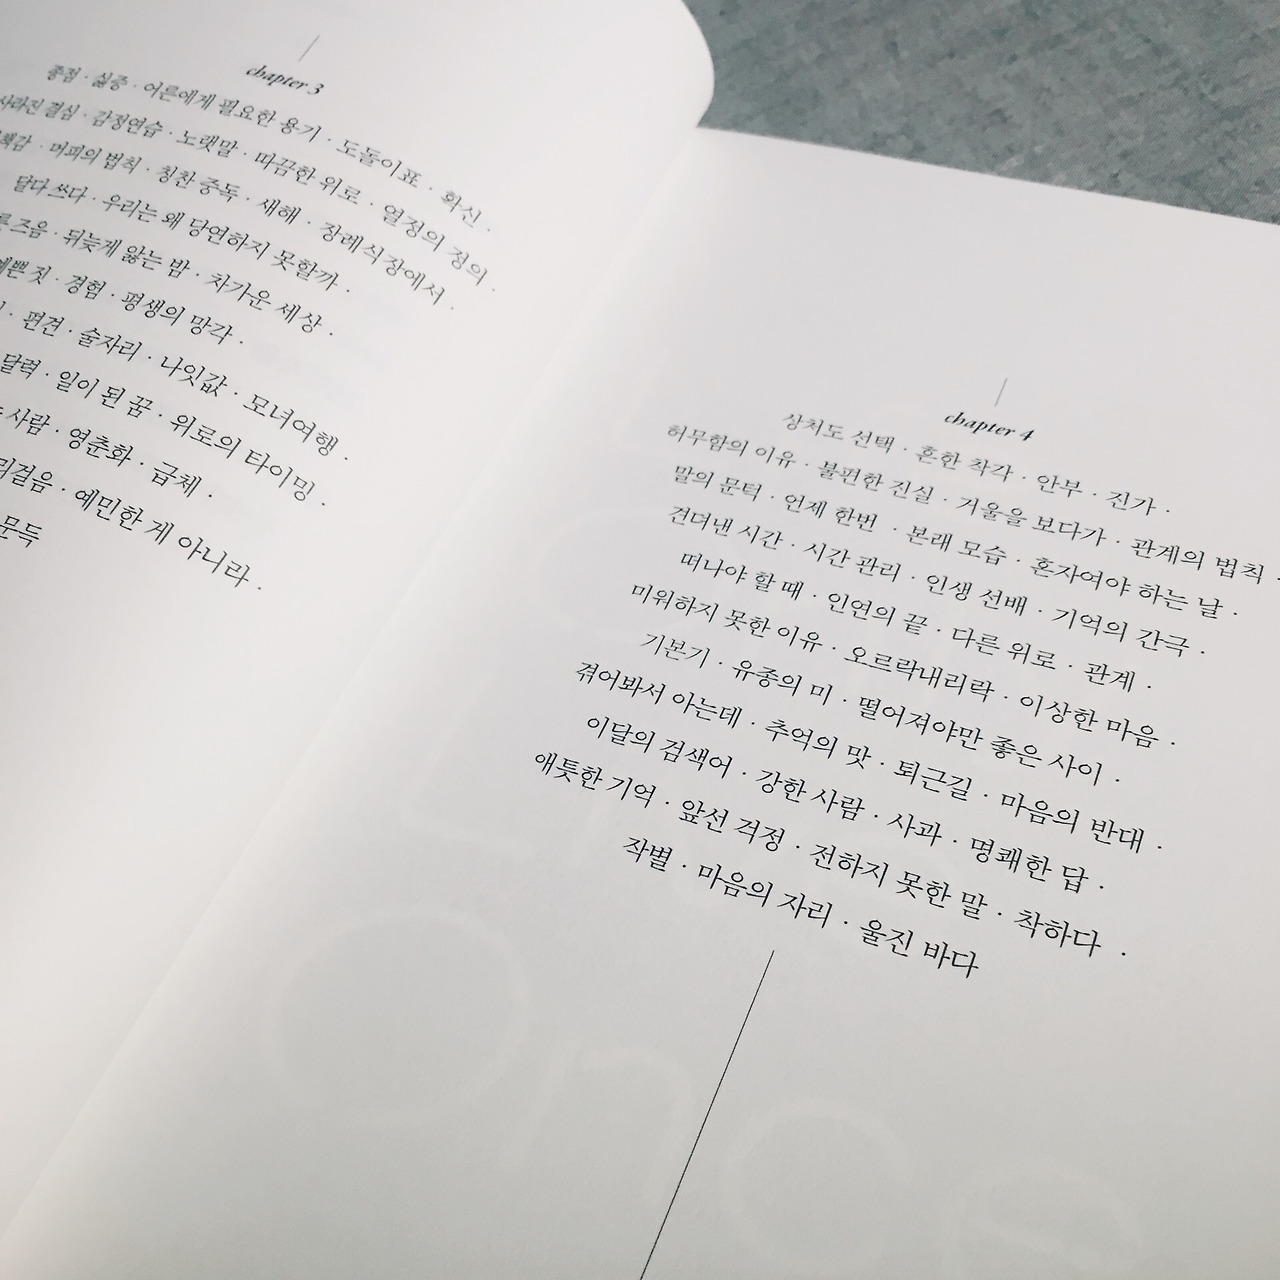 chapter 3
종점 · 싫증 · 어른에게 필요한 용기 · 도돌이표 · 확신 ·
사라진 결심 · 감정연습 · 노랫말 · 따끔한 위로 · 열정의 정의 ·
머피의 법칙 · 칭찬 중독 · 새해 · 장례식장에서 ·
달다 쓰다 · 우리는 왜 당연하지 못할까 ·
즈음 · 뒤늦게 앓는 밤 · 차가운 세상 ·
예쁜 짓 · 경험 · 평생의 망각 ·
· 편견 · 술자리 · 나잇값 · 모녀여행 ·
달력 · 일이 된 꿈 · 위로의 타이밍 ·
사람 · 영춘화 · 급체 ·
· 예민한 게 아니라 ·
문득
chapter 4
상처도 선택 · 흔한 착각 · 안부 · 진가 ·
허무함의 이유 · 불편한 진실 · 거울을 보다가 · 관계의 법칙 ·
말의 문턱 · 언제 한번 · 본래 모습 · 혼자여야 하는 날 ·
견뎌낸 시간 · 시간 관리 · 인생 선배 · 기억의 간극 ·
떠나야 할 때 · 인연의 끝 · 다른 위로 · 관계 ·
미워하지 못한 이유 · 오르락내리락 · 이상한 마음 ·
기본기 · 유종의 미 · 떨어져야만 좋은 사이 ·
겪어봐서 아는데 · 추억의 맛 · 퇴근길 · 마음의 반대 ·
이달의 검색어 · 강한 사람 · 사과 · 명쾌한 답 ·
애틋한 기억 · 앞선 걱정 · 전하지 못한 말 · 착하다 ·
작별 · 마음의 자리 · 울진 바다